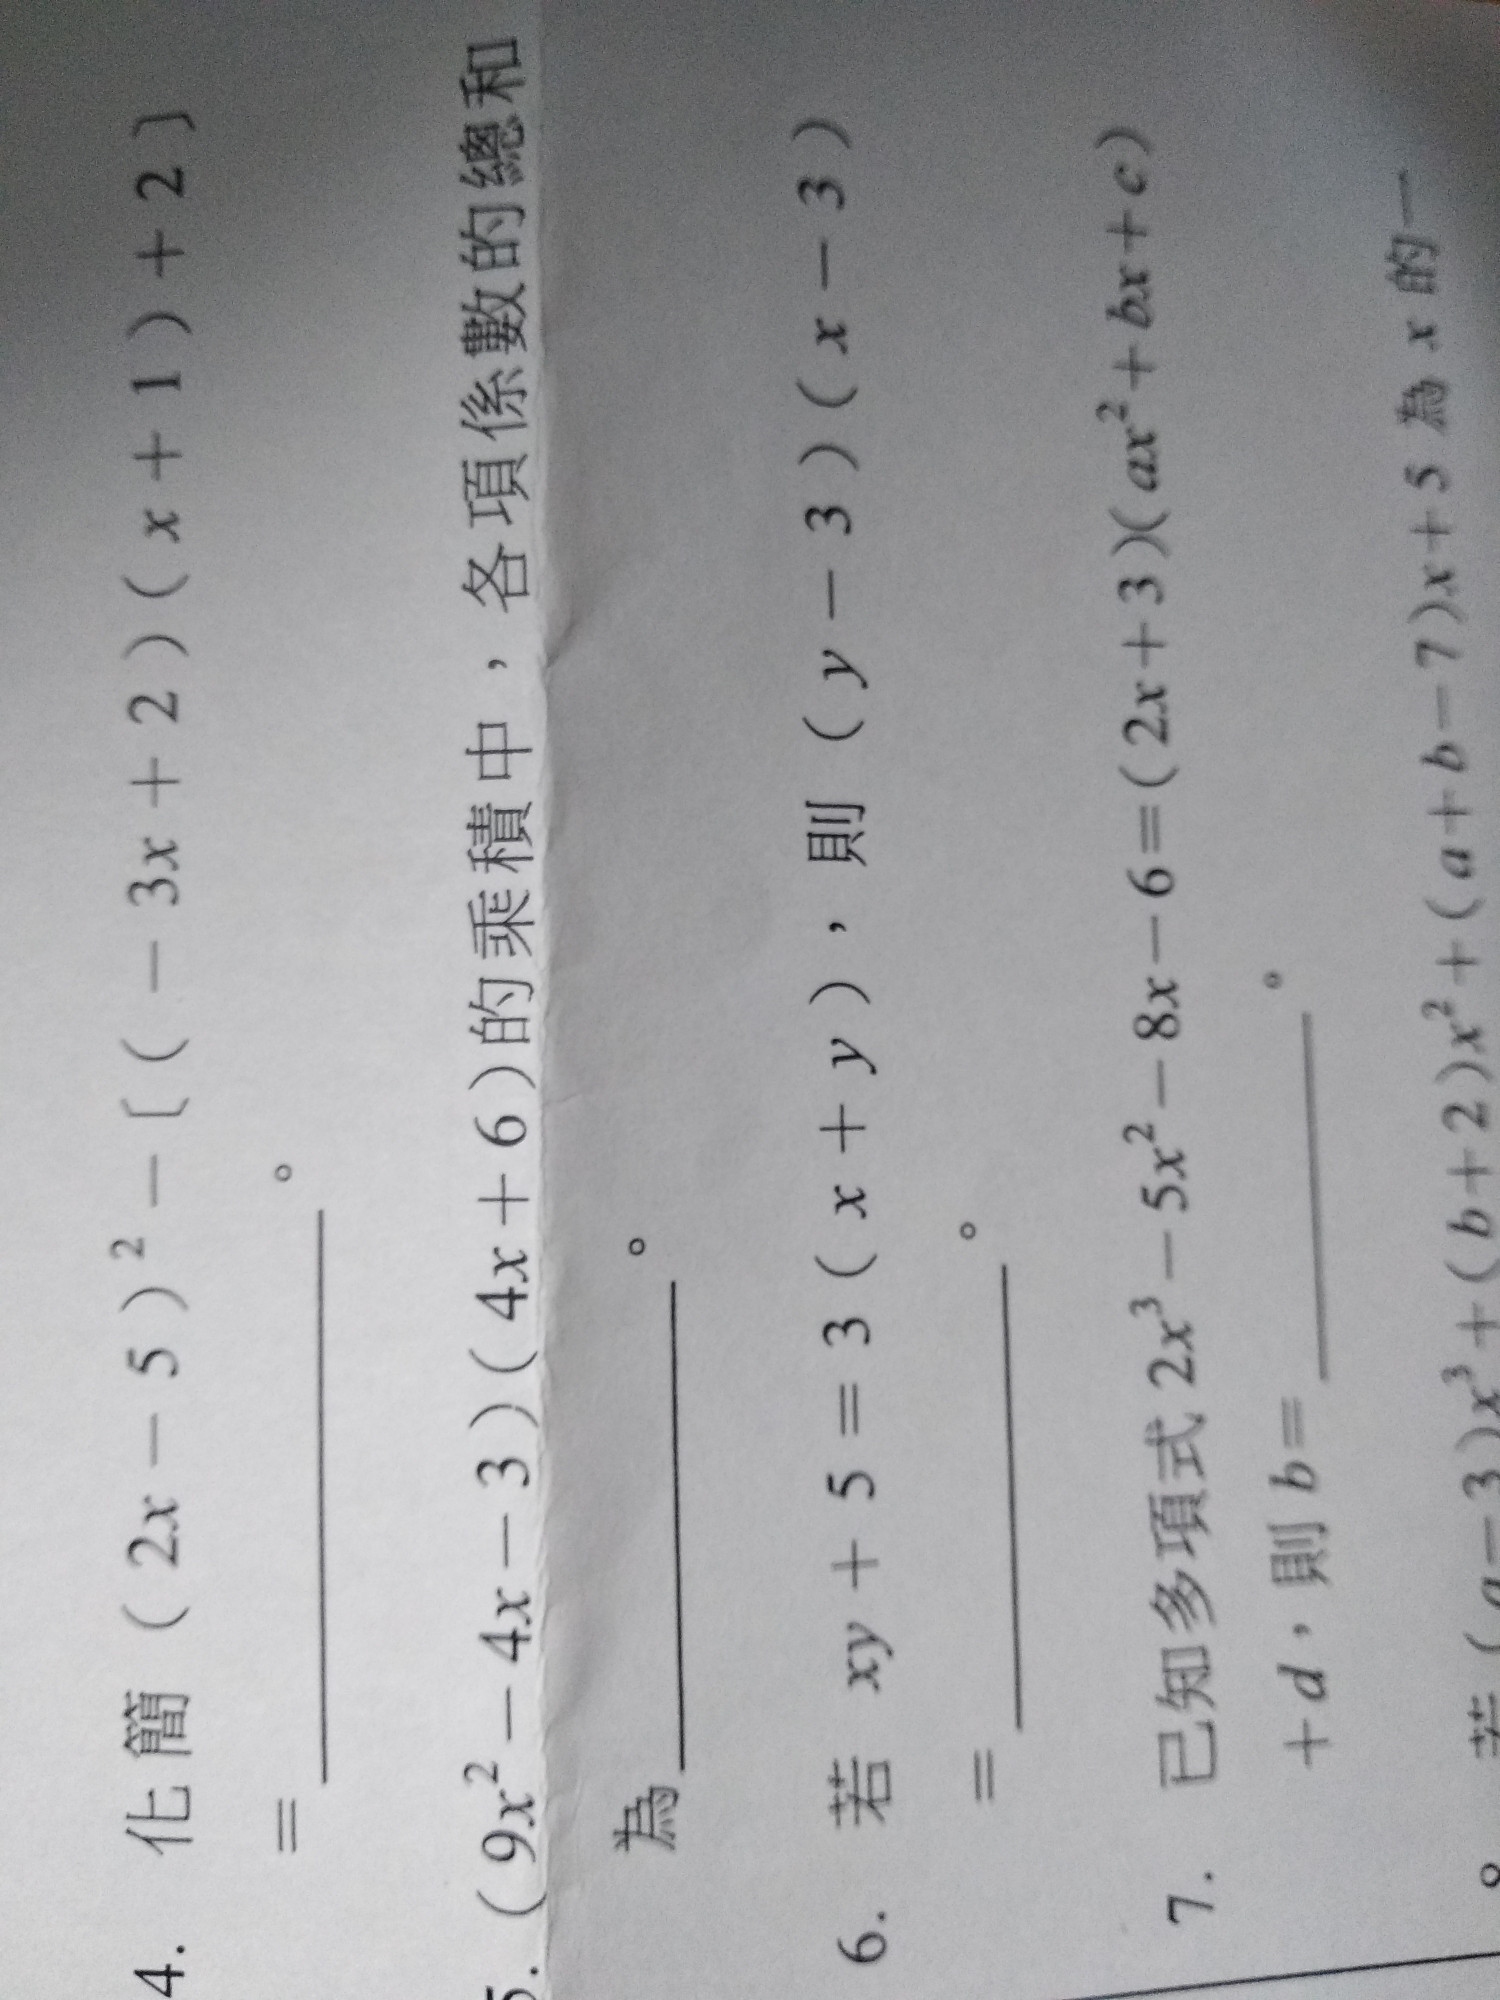 4. 化簡（2x－5）²－〔（－3x＋2）（x＋1）＋2〕
＝＿＿＿＿＿＿。
5. (9x²－4x－3)(4x＋6)的乘積中，各項係數的總和
為＿＿＿＿＿＿。
6. 若 xy＋5＝3（x＋y），則（y－3）（x－3）
＝＿＿＿＿＿＿。
7. 已知多項式 2x³－5x²－8x－6＝(2x＋3)(ax²＋bx＋c)
＋d，則 b＝＿＿＿＿＿＿。
若(a－3)x³＋(b＋2)x²＋(a＋b－7)x＋5 為 x 的一